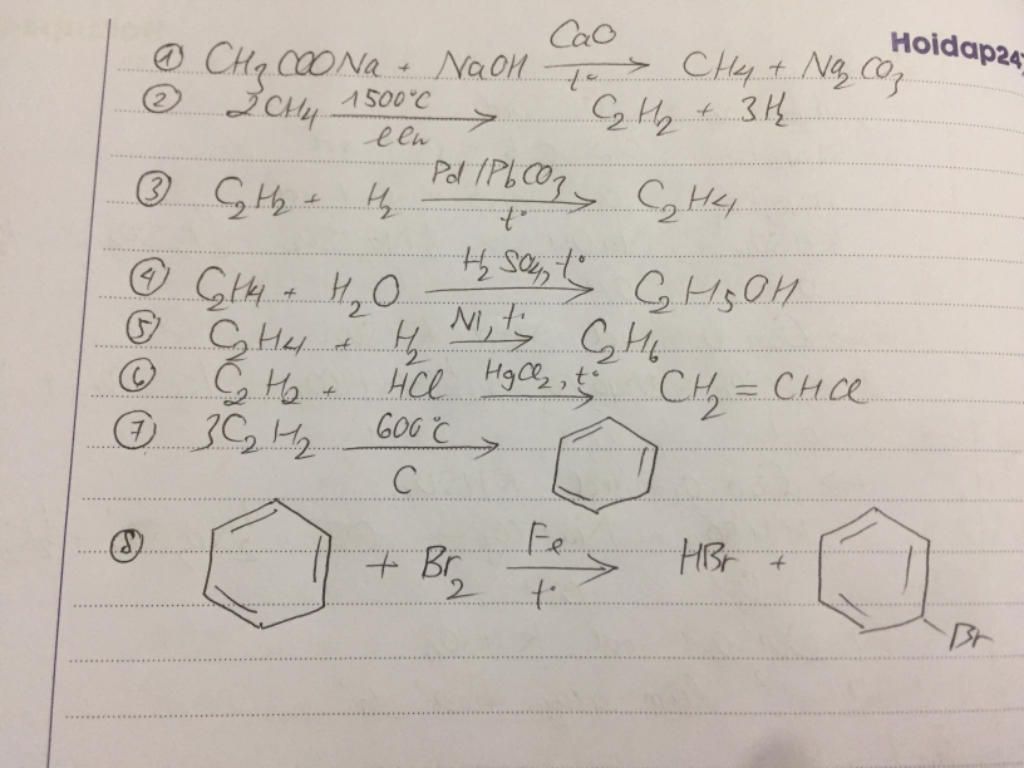 Hoidap247
① CH₃COONa + NaOH —CaO, t°→ CH₄ + Na₂CO₃
② 2CH₄ —1500°C, lln→ C₂H₂ + 3H₂
③ C₂H₂ + H₂ —Pd/PbCO₃, t°→ C₂H₄
④ C₂H₄ + H₂O —H₂SO₄, t°→ C₂H₅OH
⑤ C₂H₄ + H₂ —Ni, t°→ C₂H₆
⑥ C₂H₂ + HCl —HgCl₂, t°→ CH₂=CHCl
⑦ 3C₂H₂ —600°C, C→
⑧ + Br₂ —Fe, t°→ HBr + Br